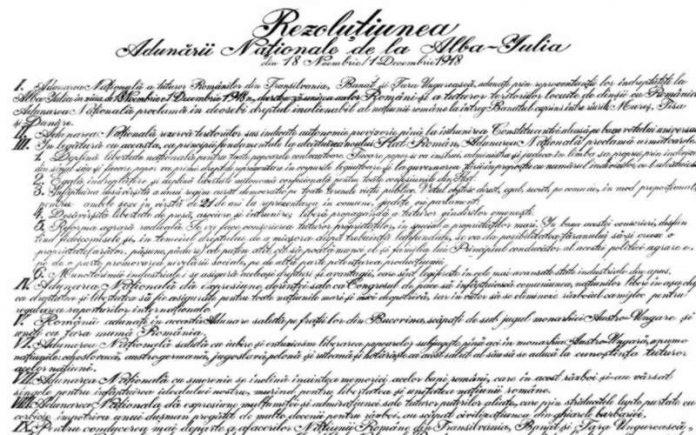 Rezoluțiunea
Adunării Naționale de la Alba-Iulia
din 18 Noembrie/1 Decembrie 1918
I. Adunarea Națională a tuturor Românilor din Transilvania, Banat și Țara Ungurească, adunați prin reprezentanții lor îndreptățiți la
Alba-Iulia în ziua de 18 Noembrie/1 Decembrie 1918, decretează unirea acelor Români și a tuturor teritoriilor locuite de dînșii cu România.
Adunarea Națională proclamă îndeosebi dreptul inalienabil al națiunii române la întreg Banatul cuprins între rîurile Mureș, Tisa
Dunăre.
II. Adunarea Națională rezervă teritoriilor sus indicate autonomie provizorie pînă la întrunirea Constituantei aleasă pe baza votului universal
III. În legătură cu aceasta, ca principii fundamentale la alcătuirea noului Stat Român, Adunarea Națională proclamă următoarele:
1. Deplină libertate națională pentru toate popoarele conlocuitoare. Fiecare popor se va instrui, administra și judeca în limba sa proprie prin indivizi
din sînul său și fiecare popor va primi drept de reprezentare în corpurile legiuitoare și la guvernarea țării în proporție cu numărul indivizilor
2. Egală îndreptățire și deplină libertate autonomă confesională pentru toate confesiunile din Stat.
3. Înfăptuirea desăvîrșită a unui regim curat democratic pe toate terenele vieții publice. Votul obștesc, direct, egal, secret, pe comune, în mod proporțional
pentru ambele sexe, în vîrstă de 21 de ani la reprezentarea în comune, județe ori parlament.
4. Desăvîrșită libertate de presă, asociere și întrunire; liberă propagandă a tuturor gîndurilor omenești.
5. Reforma agrară radicală. Se va face conscrierea tuturor proprietăților, în special a proprietăților mari. În baza acestei conscrieri, desființînd
fideicomisele și, în temeiul dreptului de a micșora după trebuință latifundiile, se va da posibilitatea țăranului să-și creeze o
proprietate (arător, pășune, pădure) cel puțin atît cît să poată munci el și familia lui. Principiul conducător al acestei politici agrare e
pe de o parte promovarea nivelării sociale, pe de altă parte potențarea producțiunii.
6. Muncitorimii industriale i se asigură aceleași drepturi și avantagii, care sînt legiferate în cele mai avansate state industriale din apus.
IV. Adunarea Națională dă expresiune dorinței sale ca Congresul de pace să înfăptuiască comuniunea națiunilor libere în așa chip
ca dreptatea și libertatea să fie asigurate pentru toate națiunile mari și mici deopotrivă, iar în viitor să se elimineze războiul ca mijloc pentru
regularea raporturilor internaționale.
V. Românii adunați în această Adunare salută pe frații lor din Bucovina, scăpați de sub jugul monarhiei Austro-Ungare și
uniți cu țara mamă România.
VI. Adunarea Națională salută cu iubire și entuziasm liberarea popoarelor subjugate pînă aci în monarhia Austro-Ungară, anume
națiunile cehoslovacă, austro-germană, jugoslavă, polonă și ruteană și hotărăște ca acest salut al său să se aducă la cunoștința tuturor
acelor națiuni.
VII. Adunarea Națională cu smerenie se închină înaintea memoriei acelor bravi români, care în acest război și-au vărsat
sîngele pentru înfăptuirea idealului nostru, murind pentru libertatea și unitatea națiunii române.
VIII. Adunarea Națională dă expresiune mulțumirei și admirațiunei sale tuturor puterilor aliate, care prin strălucitele lupte purtate cu
cerbicie împotriva unui dușman pregătit de multe decenii pentru război, au scăpat civilizațiunea din ghiarele barbariei.
IX. Pentru conducerea mai departe a afacerilor Națiunii Române din Transilvania, Banat și Țara Ungurească,